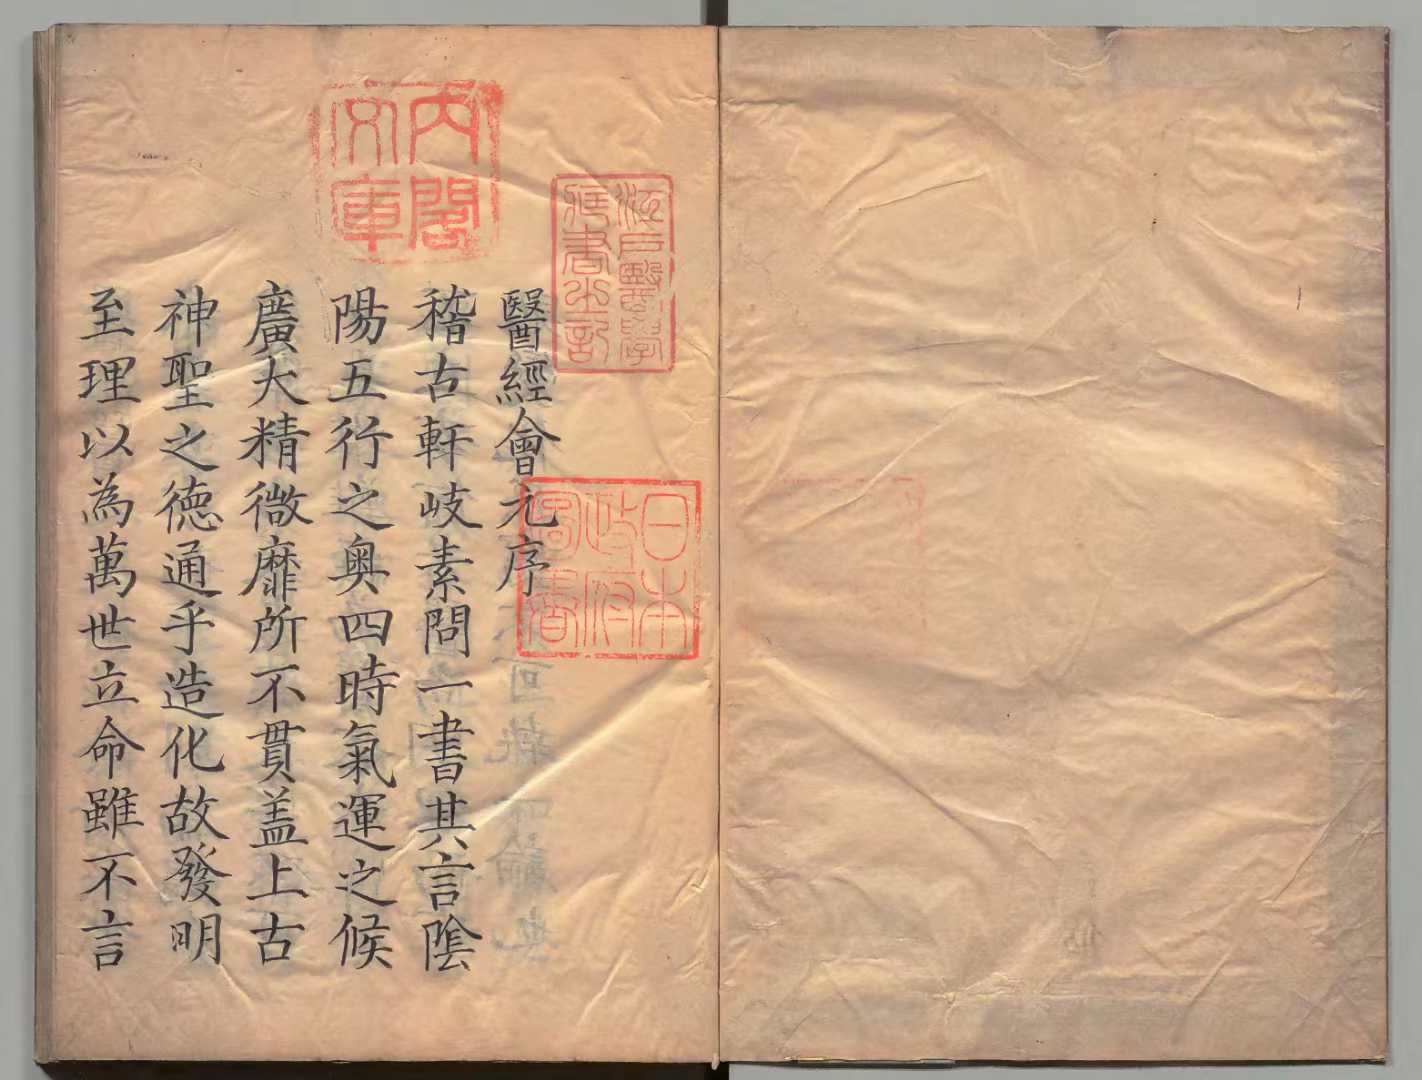 醫經會元序
稽古軒岐素問一書其言陰
陽五行之奧四時氣運之候
廣大精微靡所不貫盖上古
神聖之德通乎造化故發明
至理以為萬世立命雖不言
江戶醫學
藏書之記
內閣
文庫
日本
政府
圖書